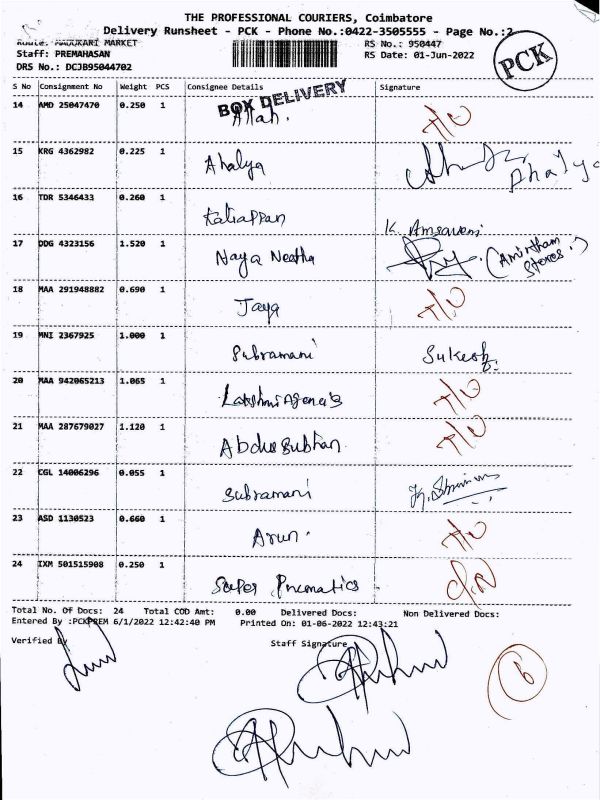 THE PROFESSIONAL COURIERS, Coimbatore
Delivery Runsheet - PCK - Phone No.:0422-3505555 - Page No.:2
Route: MADUKARI MARKET RS No.: 950447
Staff: PREMAHASAN RS Date: 01-Jun-2022
DRS No.: DCJB95044702
PCK
S No Consignment No Weight PCS Consignee Details Signature
BOX DELIVERY
14 AMD 25047470 0.250 1 T/O
15 KRG 4362982 0.225 1 Ahalya Ahalya
16 TDR 5346433 0.260 1 Kaliappan K. Amsaveni
17 DDG 4323156 1.520 1 Naya Neetha (Amirtham Stores.)
18 MAA 291948882 0.690 1 Jaya T/O
19 MNI 2367925 1.000 1 Subramani Sukesh
20 MAA 942065213 1.065 1 Lakshmi Agencis T/O
21 MAA 287679027 1.120 1 Abdusubhan T/O
22 CGL 14006296 0.055 1 Subramani
23 ASD 1130523 0.660 1 Arun. T/O
24 IXM 501515908 0.250 1 Super Pneumatics
Total No. Of Docs: 24 Total COD Amt: 0.00 Delivered Docs: Non Delivered Docs:
Entered By :PCKPREM 6/1/2022 12:42:40 PM Printed On: 01-06-2022 12:43:21
Verified By Staff Signature
6